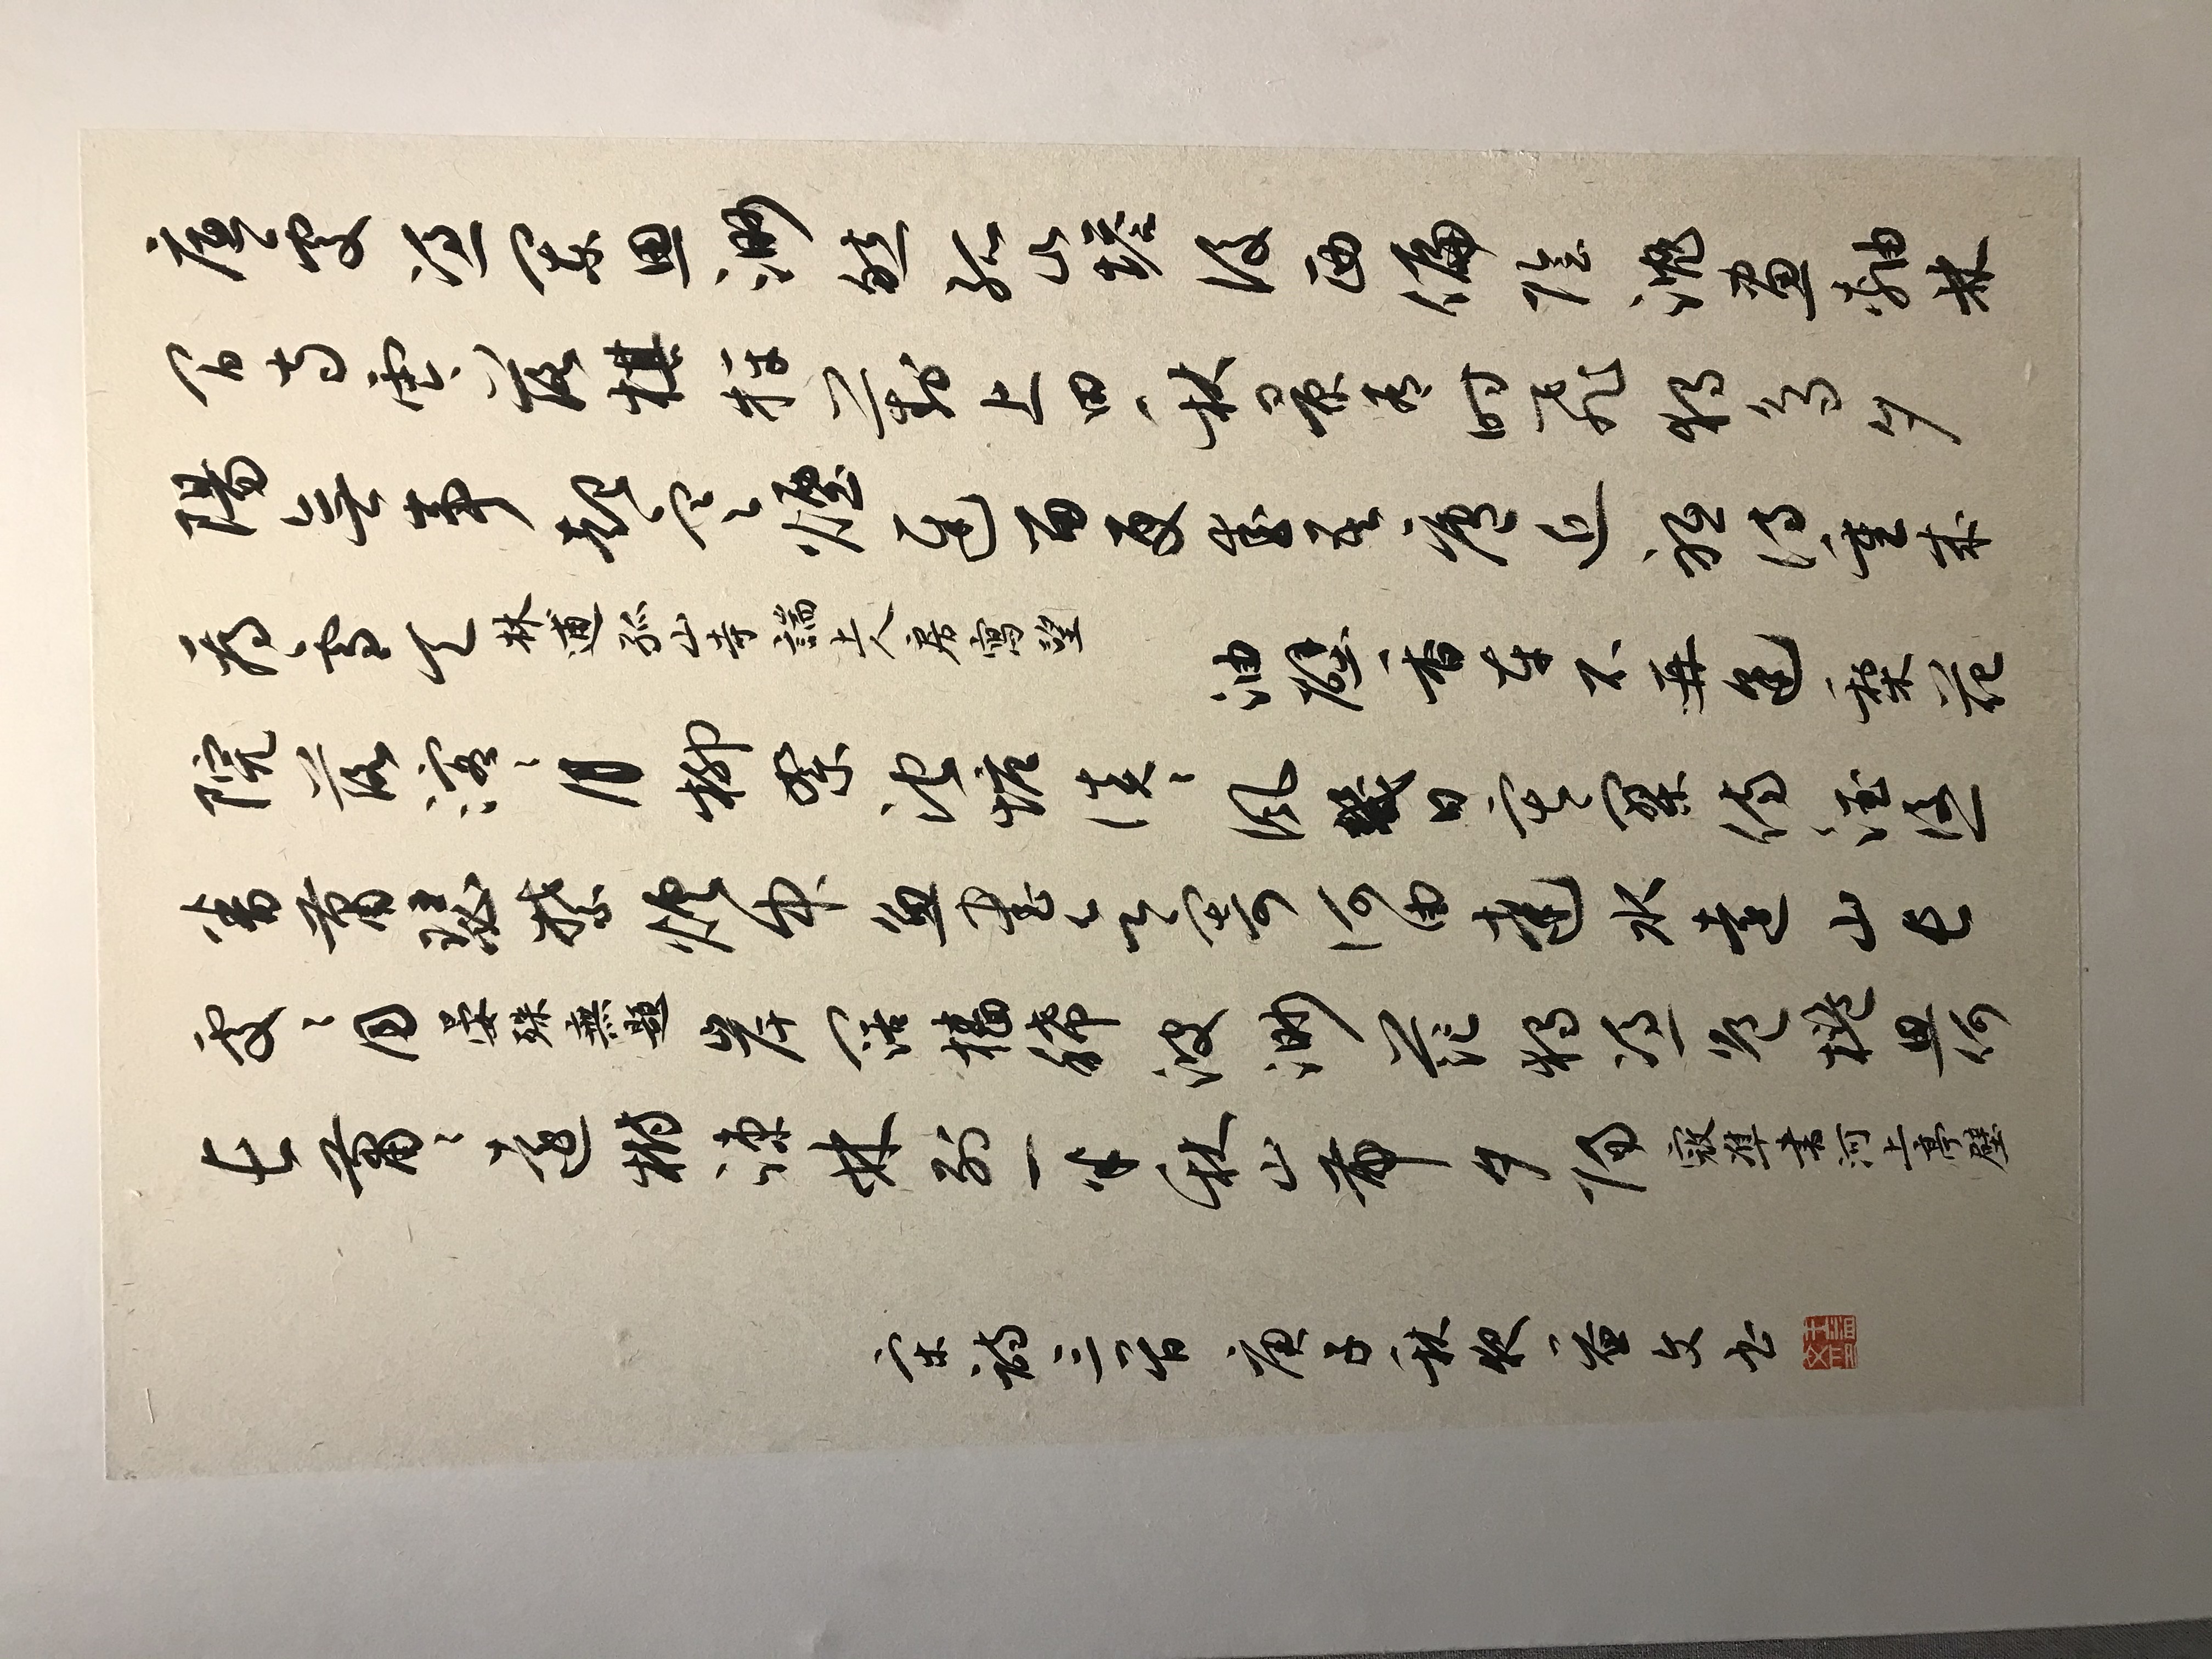 底處凭闌思渺然孤山塔後西偏陰沈畫軸林
間寺零落棋枰葑上田秋景有時飛獨鳥夕
陽無事起寒煙遲留更愛吾廬近祗待重來
看雪天 林逋孤山寺端上人房寫望 油壁香車不再逢梨花
院落溶〻月柳絮池塘淡〻風幾日寂寥傷酒後一
番蕭瑟禁煙中魚書欲寄何由達水遠山長
處〻同 晏殊無題 岸闊檣稀波渺茫獨凭危檻思何
長蕭〻遠樹疎林外一半秋山帶夕陽 寇準書河上亭壁
宋詩三首 庚子秋夜 益文書
王益文印